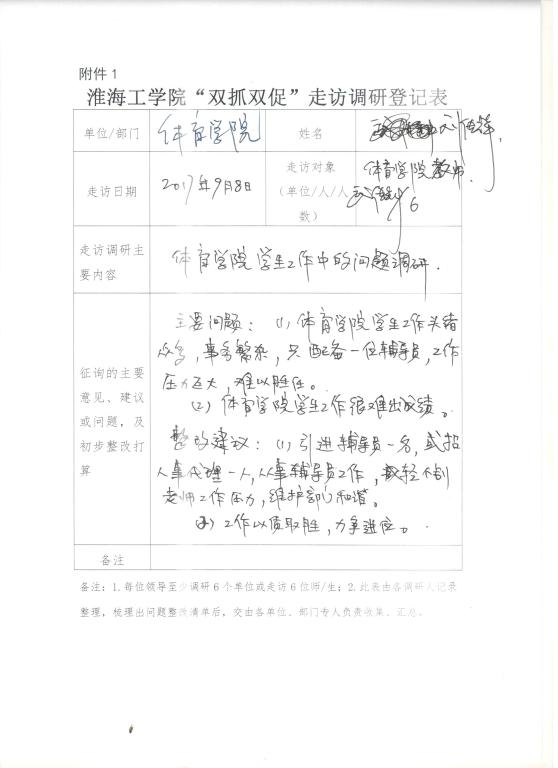 附件1
淮海工学院“双抓双促”走访调研登记表
单位/部门
体育学院
姓名
走访日期
2017年9月8日
走访对象
(单位/人/人
数)
体育学院教师
6
走访调研主
要内容
体育学院学生工作中的问题调研.
征询的主要
意见、建议
或问题,及
初步整改打
算
主要问题:(1)体育学院学生工作头绪
众多,事务繁杂,只配备一位辅导员,工作
压力巨大,难以胜任。
(2)体育学院学生工作很难出成绩。
整改建议:(1)引进辅导员一名,或招
人事代理一人,从事辅导员工作,减轻
老师工作压力,维护部门和谐。
工作以质取胜,力争进位。
备注
备注:1.每位领导至少调研6个单位或走访6位师/生;2.此表由各调研人记录
整理,梳理出问题整改清单后,交由各单位、部门专人负责收集、汇总。